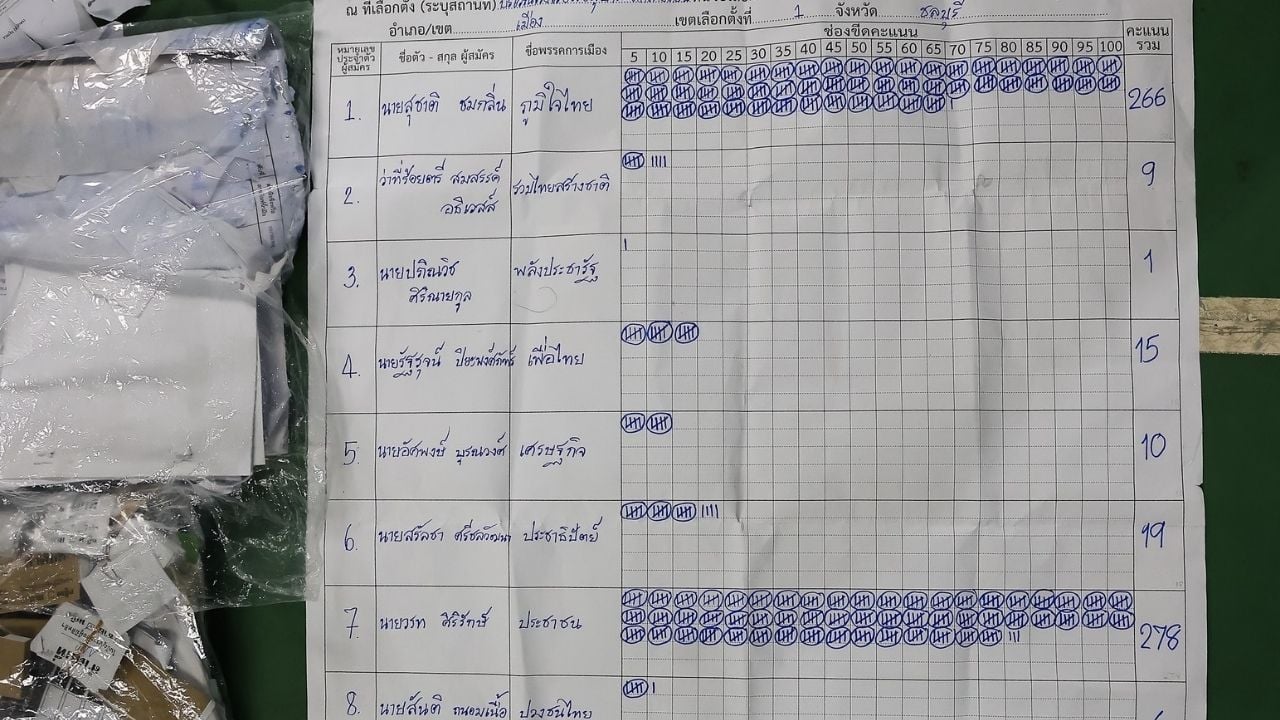 ณ ที่เลือกตั้ง (ระบุสถานที่)
อำเภอ/เขต เมือง เขตเลือกตั้งที่ 1 จังหวัด ชลบุรี
หมายเลขประจำตัวผู้สมัคร ชื่อตัว - สกุล ผู้สมัคร ชื่อพรรคการเมือง ช่องขีดคะแนน คะแนนรวม
5 10 15 20 25 30 35 40 45 50 55 60 65 70 75 80 85 90 95 100
1. นายสุชาติ ชมกลิ่น ภูมิใจไทย 266
2. ว่าที่ร้อยตรี สมสรรค์ อธิเวสส์ รวมไทยสร้างชาติ 9
3. นายปภิณวิช ศิริณายกุล พลังประชารัฐ 1
4. นายรัฐรุจน์ เพื่อไทย 15
5. นายอัศพงษ์ บุรณวงศ์ เศรษฐกิจ 10
6. นายสรัลชา ศรีชลวัฒนา ประชาธิปัตย์ 19
7. นายวรท ศิริรักษ์ ประชาชน 278
8. นายสันติ ถนอมเนื้อ ปวงชนไทย